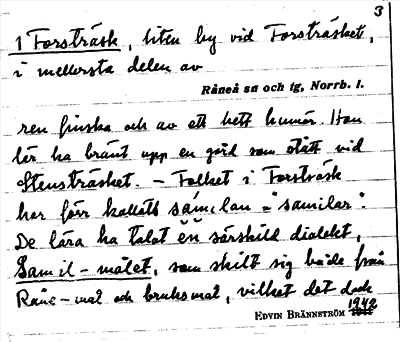 3
1 Forsträsk, liten by vid Forsträsket,
i mellersta delen av
Råneå sn och tg, Norrb. l.
ren finska och av ett hett humör. Han
lär ha bränt upp en gård som stått vid
Stensträsket. – Folket i Forsträsk
har förr kallats samilan = "samilar".
De lära ha talat en särskild dialekt,
Samil-målet, som skilt sig både från
Råne-mål och bruksmål, vilket det dock
EDVIN BRÄNNSTRÖM 1942